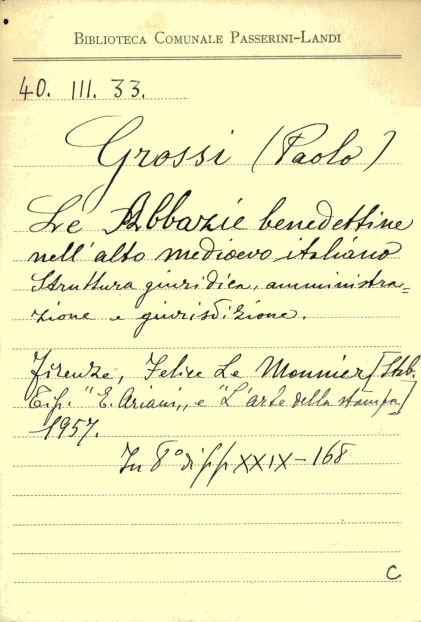 BIBLIOTECA COMUNALE PASSERINI-LANDI
40. III. 33.
Grossi (Paolo)
Le Abbazie benedettine
nell'alto medioevo italiano
Struttura giuridica, amministra=
zione e giurisdizione.
Firenze, Felice Le Monnier [Stab.
Tip. "E. Ariani„ e "L'arte della stampa]
1957.
In 8° di pp XXIX-168
C